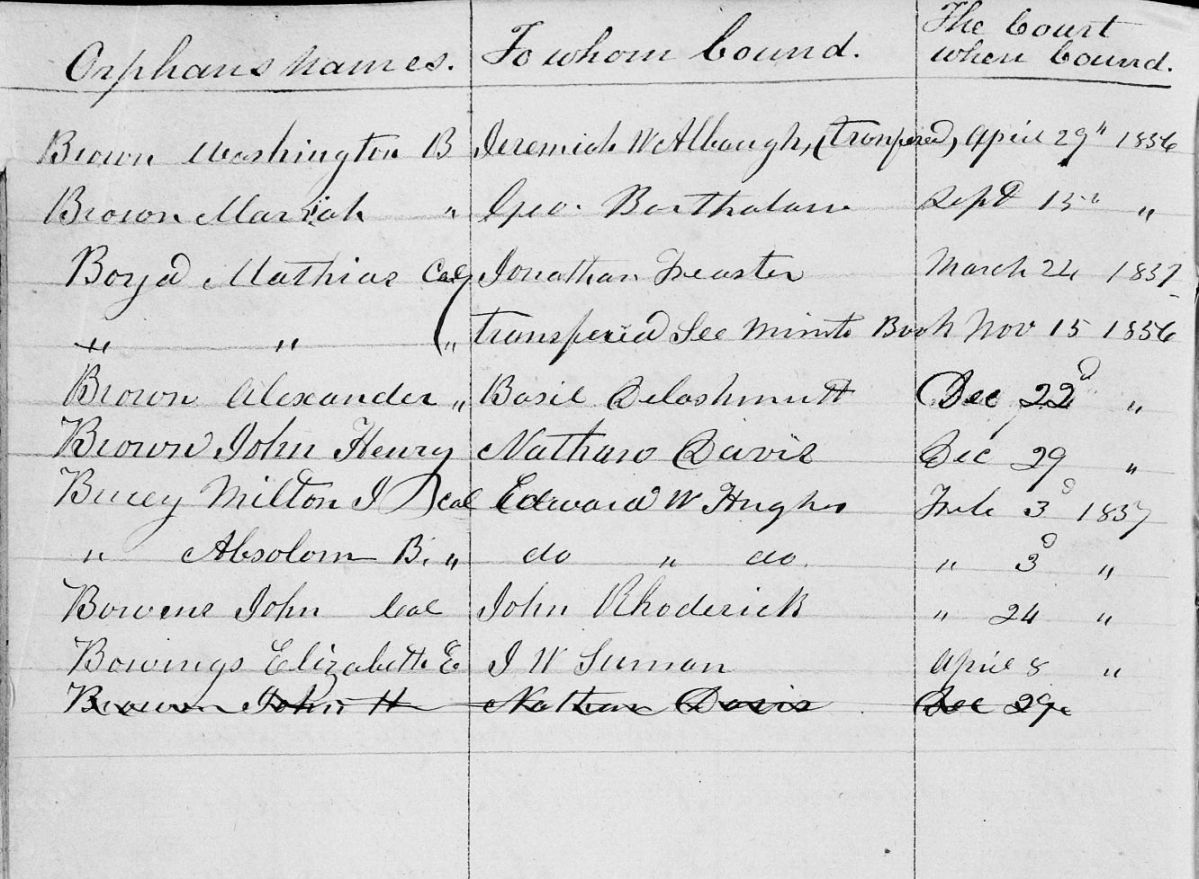 Orphans names. To whom bound. The Court when bound.
Brown Washington B Jeremiah W Albaugh, (transfered, April 29th 1856
Brown Mariah " Geo. Bartholow Sept 15th "
Boyd Mathias Col Jonathan Feaster March 24 1857
" " ( " transfered See Minute Book Nov 15 1856
Brown Alexander " Basil Delashmutt Dec 22d "
Brown John Henry Nathan Davis Dec 29 "
Bucey Milton J col Edward W Hughes Feb 3d 1857
" Absolom B. " do " do 3d "
Bowens John Col John Rhoderick " 24 "
Bowings Elizabeth E J W Suman April 8 "
Brown John H Nathan Davis Dec 29